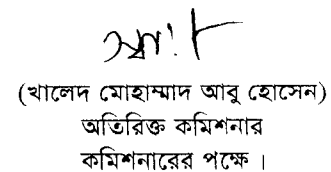 স্বা!
(খালেদ মোহাম্মাদ আবু হোসেন)
অতিরিক্ত কমিশনার
কমিশনারের পক্ষে ।